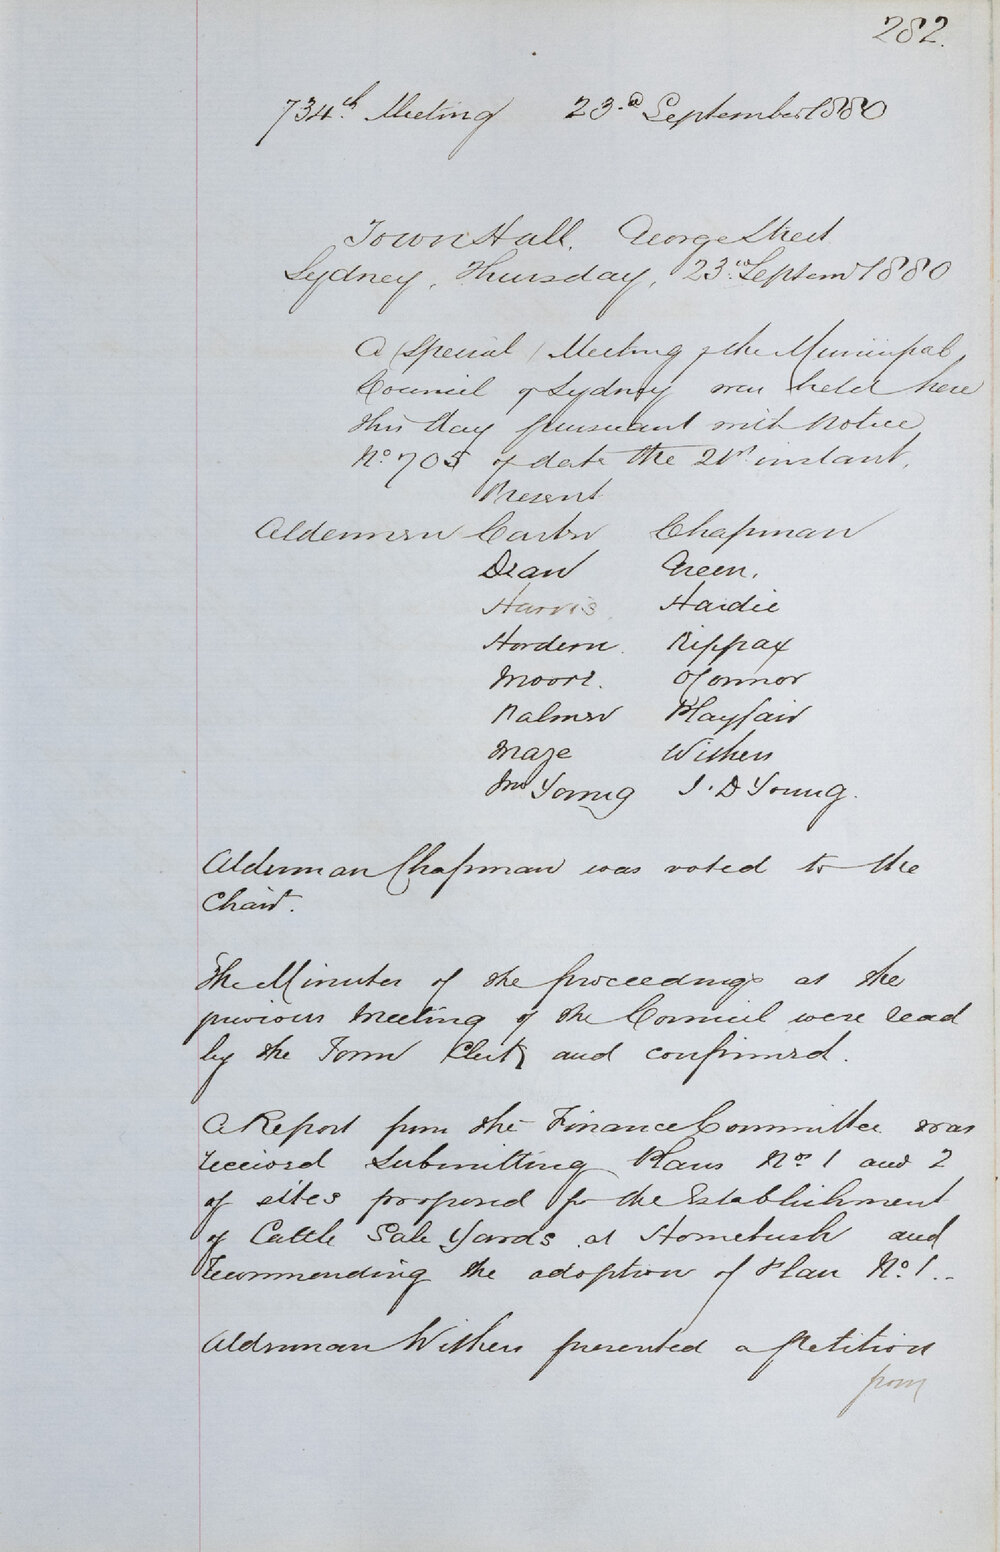 282.
734th Meeting 23rd September 1880
Town Hall. George Street
Sydney, Thursday, 23rd Septem 1880
A Special Meeting of the Municipal
Council of Sydney was held here
this day pursuant with Notice
No 705 of date the 21st instant.
Present
Aldermen Carter Chapman
Dean Green.
Harris Hardie
Hordern Kippax
Moore. O'Connor
Palmer Playfair
Maze Withers
Wm Young J. D Young.
Alderman Chapman was voted to the
Chair.
The Minutes of the proceedings at the
previous Meeting of the Council were read
by the Town Clerk and confirmed.
A Report from the Finance Committee was
received submitting Plans Nos 1 and 2
of sites proposed for the Establishment
of Cattle Sale Yards at Homebush and
recommending the adoption of Plan No 1.
Alderman Withers presented a Petition
from